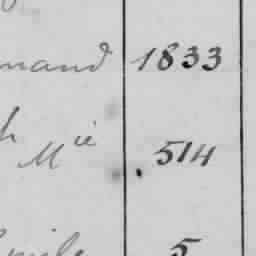 mand 1833
h Mie 514
5